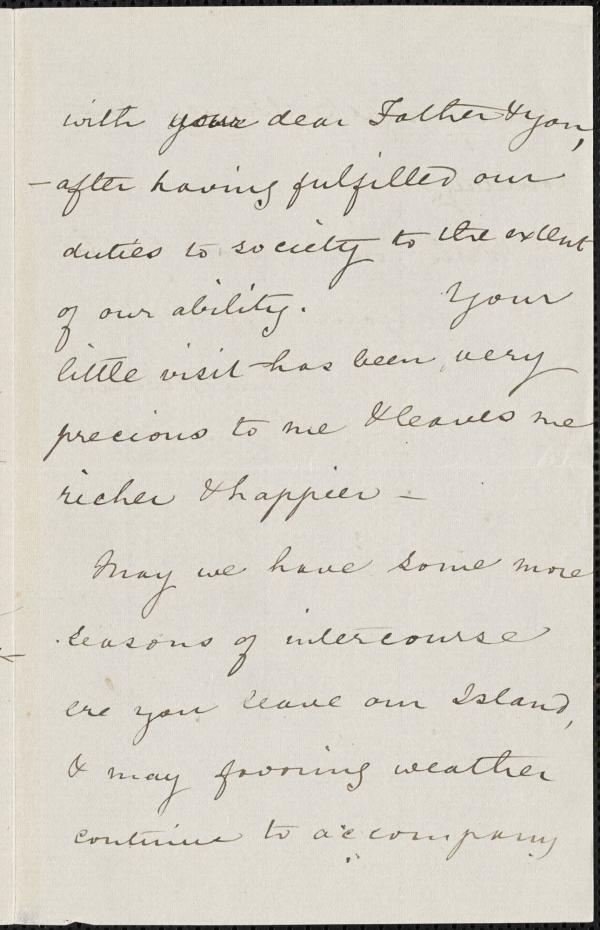 with your dear Father & you,
– after having fulfilled our
duties to society to the extent
of our ability. Your
little visit has been very
precious to me & leaves me
richer & happier –
May we have some more
seasons of intercourse
ere you leave our Island,
& may favoring weather
continue to accompany